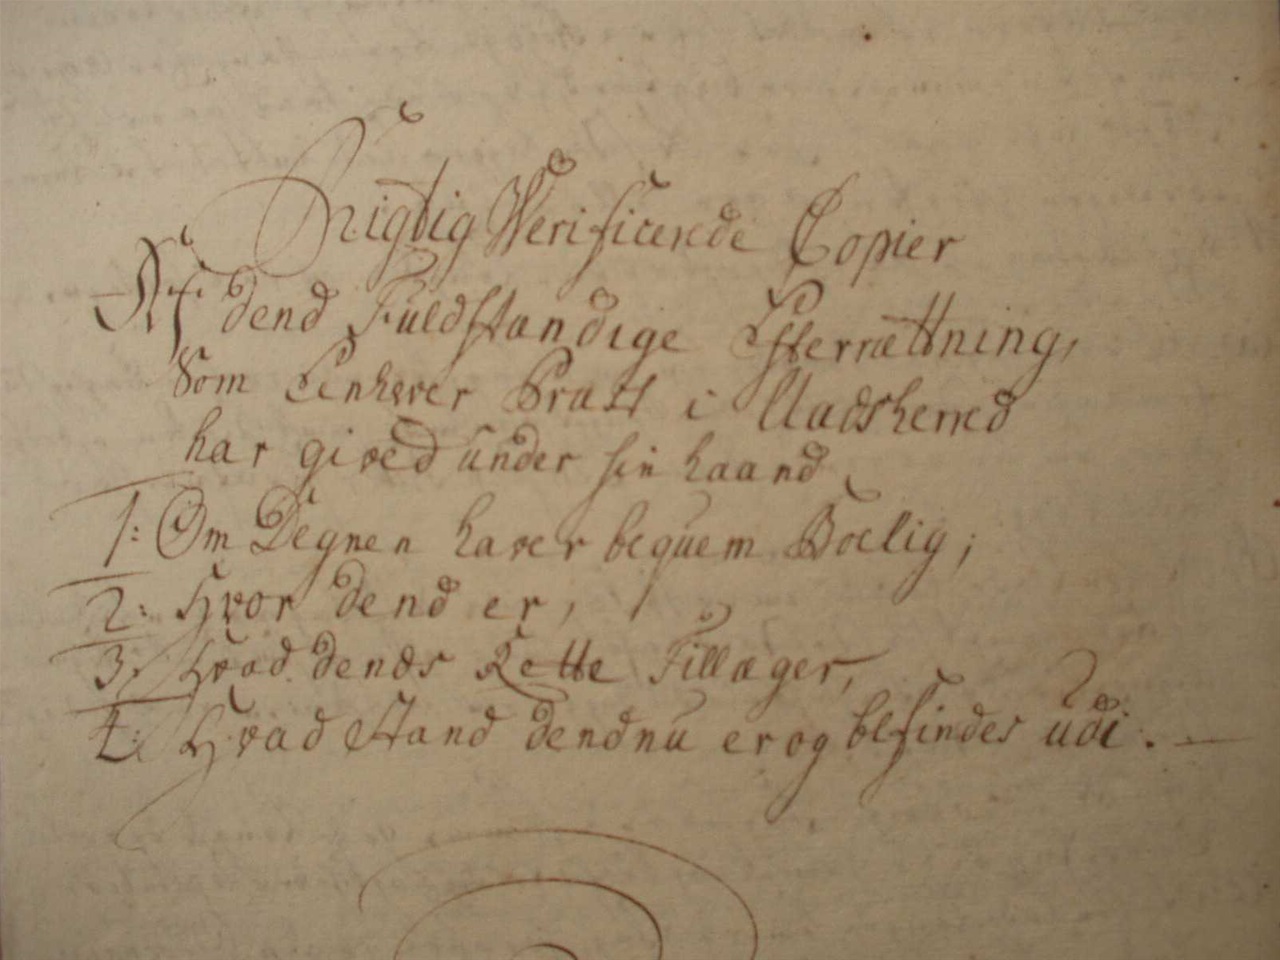 Rigtig Verificerede Copier
Af dend Fuldstandige Efterrættning,
Som Eenhver Præst i Madsherred
har gived under sin haand
1: Om Degnen haver beqvem Boelig;
2: Hvor dend er,
3: Hvad dends Rette Tillæger,
4: Hvad Stand dend nu er og befindes udi.